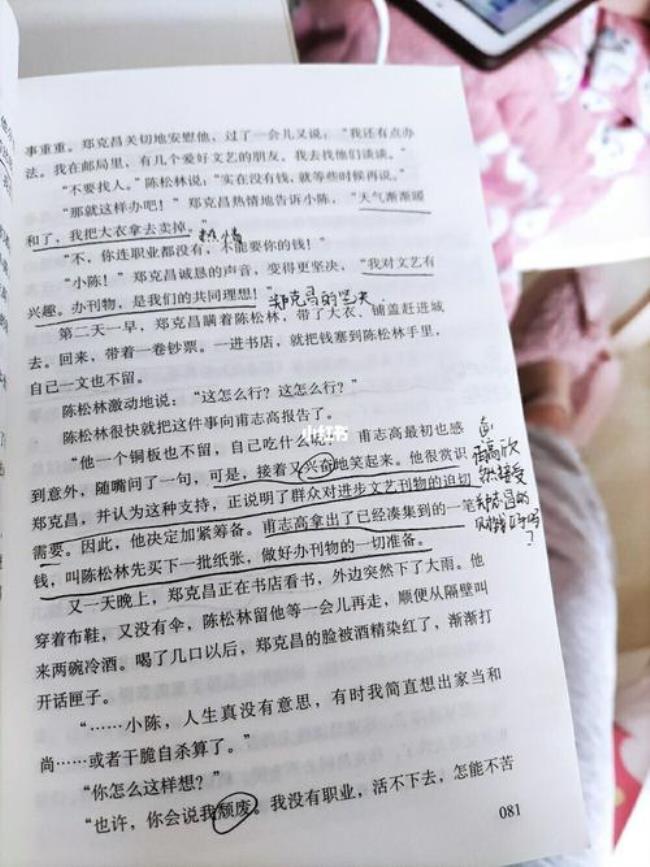 事重重。郑克昌关切地安慰他，过了一会儿又说：“我还有点办
法。我在邮局里，有几个爱好文艺的朋友。我去找他们谈谈。”
“不要找人。”陈松林说：“实在没有钱，就等些时候再说。”
“那就这样办吧！”郑克昌热情地告诉小陈，“天气渐渐暖
和了，我把大衣拿去卖掉。”
热情
“不，你连职业都没有，不能要你的钱！”
“小陈！”郑克昌诚恳的声音，变得更坚决，“我对文艺有
兴趣。办刊物，是我们的共同理想！”
郑克昌的
第二天一早，郑克昌瞒着陈松林，带了大衣、铺盖赶进城
去。回来，带着一卷钞票。一进书店，就把钱塞到陈松林手里，
自己一文也不留。
陈松林激动地说：“这怎么行？这怎么行？”
陈松林很快就把这件事向甫志高报告了。
小红书
“他一个铜板也不留，自己吃什么呢？”甫志高最初也感
到意外，随嘴问了一句，可是，接着又兴奋地笑起来。他很赏识
郑克昌，并认为这种支持，正说明了群众对进步文艺刊物的迫切
需要。因此，他决定加紧筹备。甫志高拿出了已经凑集到的一笔
钱，叫陈松林先买下一批纸张，做好办刊物的一切准备。
志高欣
然接受
郑克昌的
？
又一天晚上，郑克昌正在书店看书，外边突然下了大雨。他
穿着布鞋，又没有伞，陈松林留他等一会儿再走，顺便从隔壁叫
来两碗冷酒。喝了几口以后，郑克昌的脸被酒精染红了，渐渐打
开话匣子。
“……小陈，人生真没有意思，有时我简直想出家当和
尚……或者干脆自杀算了。”
“你怎么这样想？”
“也许，你会说我颓废。我没有职业，活不下去，怎能不苦
081